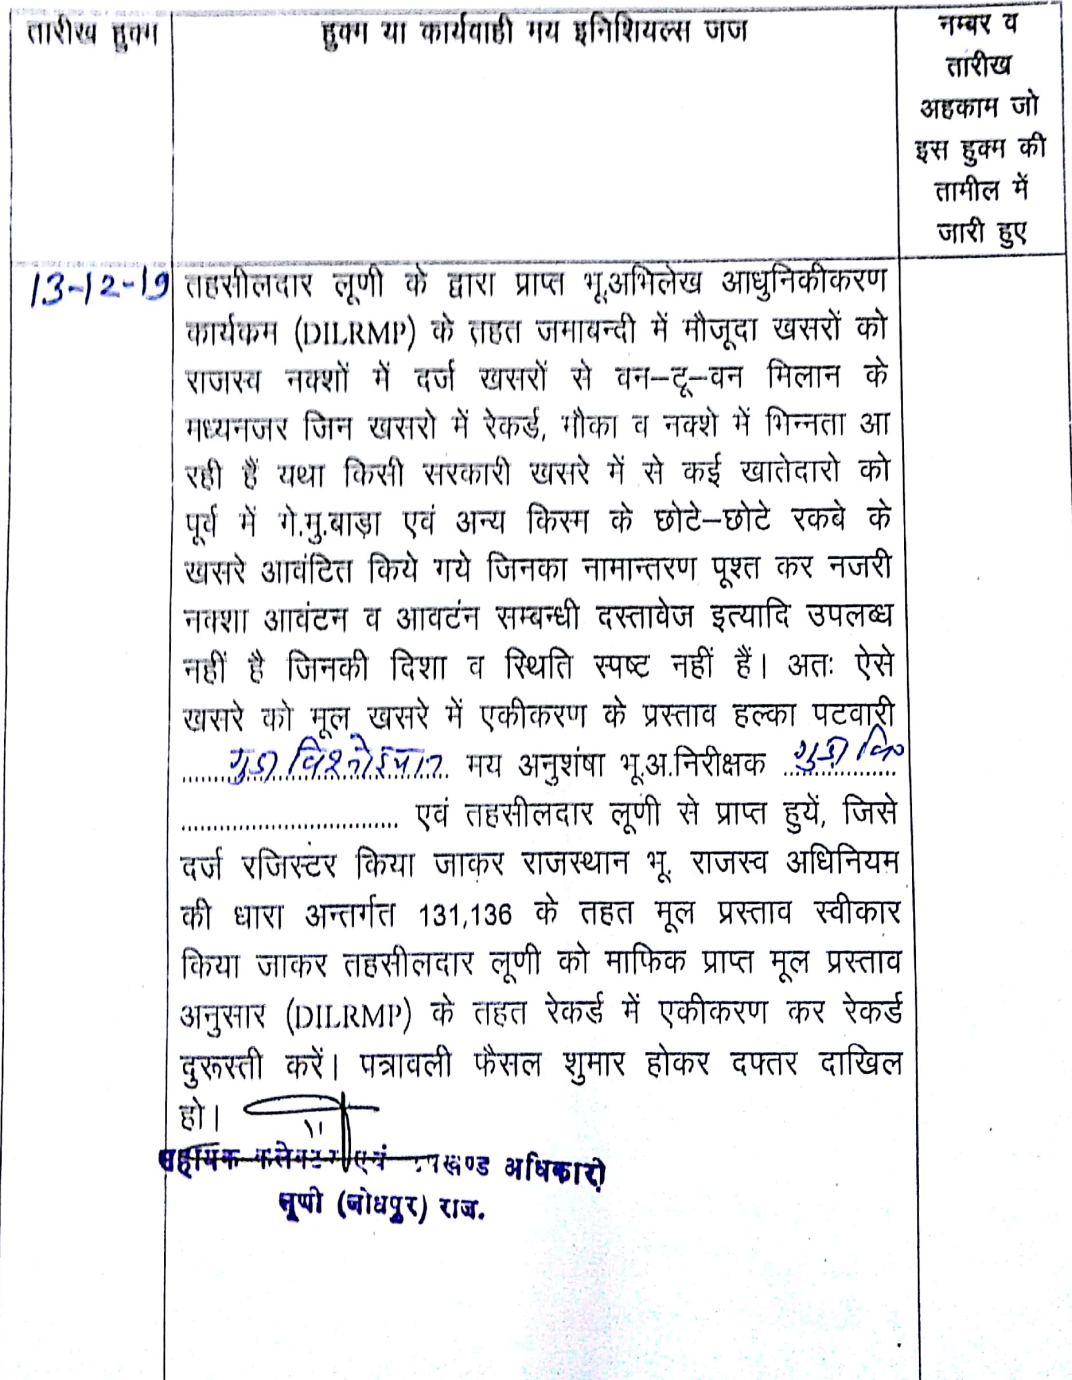 तारीख हुक्म
हुक्म या कार्यवाही मय इनिशियल्स जज
नम्बर व
तारीख
अहकाम जो
इस हुक्म की
तामील में
जारी हुए
13-12-19
तहसीलदार लूणी के द्वारा प्राप्त भू.अभिलेख आधुनिकीकरण
कार्यकम (DILRMP) के तहत जमाबन्दी में मौजूदा खसरों को
राजस्व नक्शों में दर्ज खसरों से वन–टू–वन मिलान के
मध्यनजर जिन खसरो में रेकर्ड, मौका व नक्शे में भिन्नता आ
रही हैं यथा किसी सरकारी खसरे में से कई खातेदारो को
पूर्व में गे.मु.बाड़ा एवं अन्य किस्म के छोटे–छोटे रकबे के
खसरे आवंटित किये गये जिनका नामान्तरण पूश्त कर नजरी
नक्शा आवंटन व आवटंन सम्बन्धी दस्तावेज इत्यादि उपलब्ध
नहीं है जिनकी दिशा व स्थिति स्पष्ट नहीं हैं। अतः ऐसे
खसरे को मूल खसरे में एकीकरण के प्रस्ताव हल्का पटवारी
गुडा विश्नोईयान मय अनुशंषा भू.अ.निरीक्षक गुडा वि०
................................ एवं तहसीलदार लूणी से प्राप्त हुयें, जिसे
दर्ज रजिस्टर किया जाकर राजस्थान भू. राजस्व अधिनियम
की धारा अन्तर्गत 131,136 के तहत मूल प्रस्ताव स्वीकार
किया जाकर तहसीलदार लूणी को माफिक प्राप्त मूल प्रस्ताव
अनुसार (DILRMP) के तहत रेकर्ड में एकीकरण कर रेकर्ड
दुरूस्ती करें। पत्रावली फैसल शुमार होकर दफ्तर दाखिल
हो।
सहायक कलेक्टर एवं उपखण्ड अधिकारी
लूणी (जोधपुर) राज.